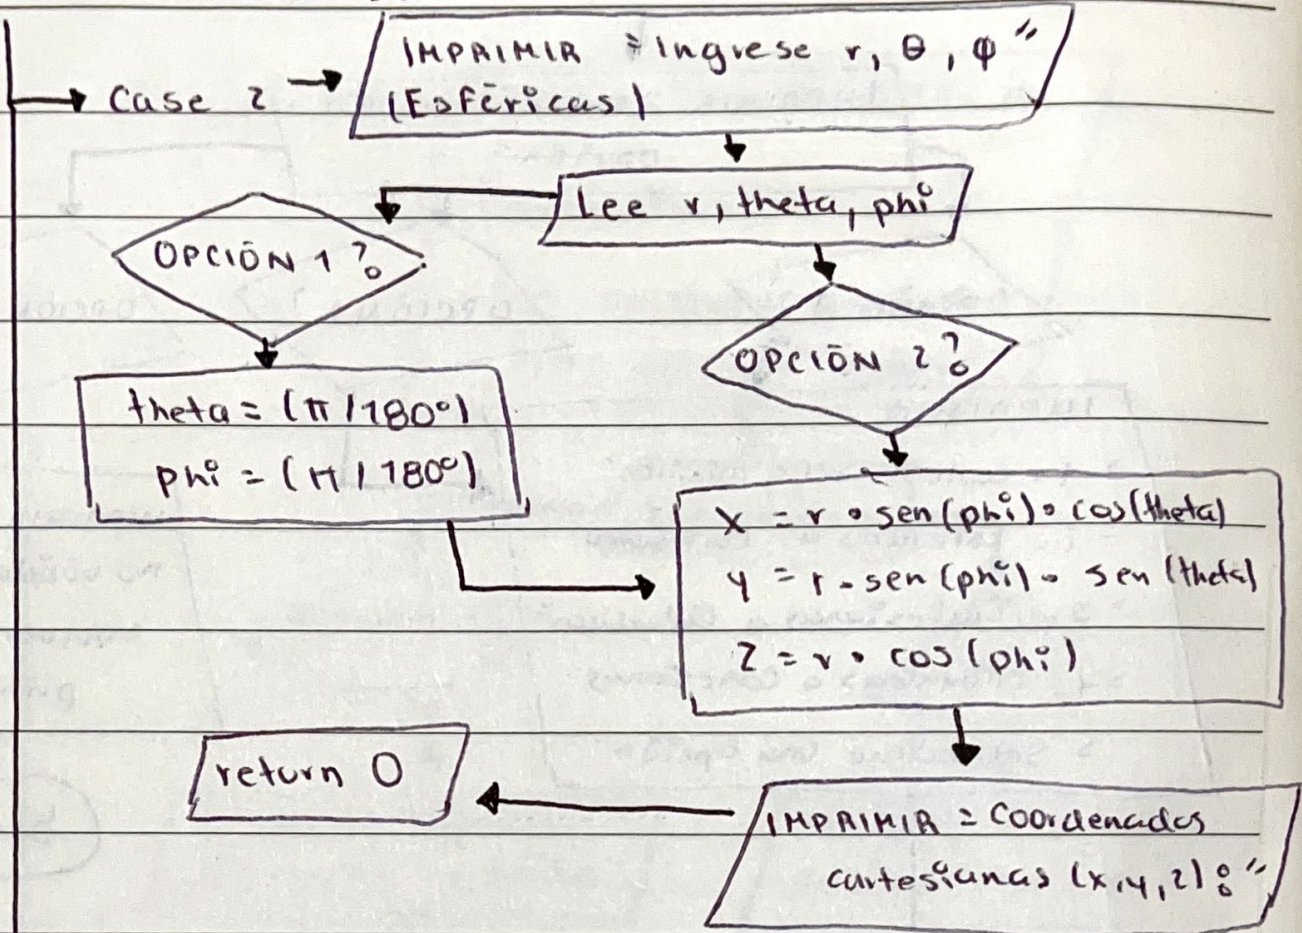 Case 2
IMPRIMIR = Ingrese r, θ, φ"
(Esféricas)
Lee r, theta, phi
OPCIÓN 1?
OPCIÓN 2?
theta = (π/180°)
phi = (π/180°)
x = r • sen(phi) • cos(theta)
y = r • sen(phi) • sen(theta)
z = r • cos(phi)
return 0
IMPRIMIR = Coordenadas
cartesianas (x,y,z):"